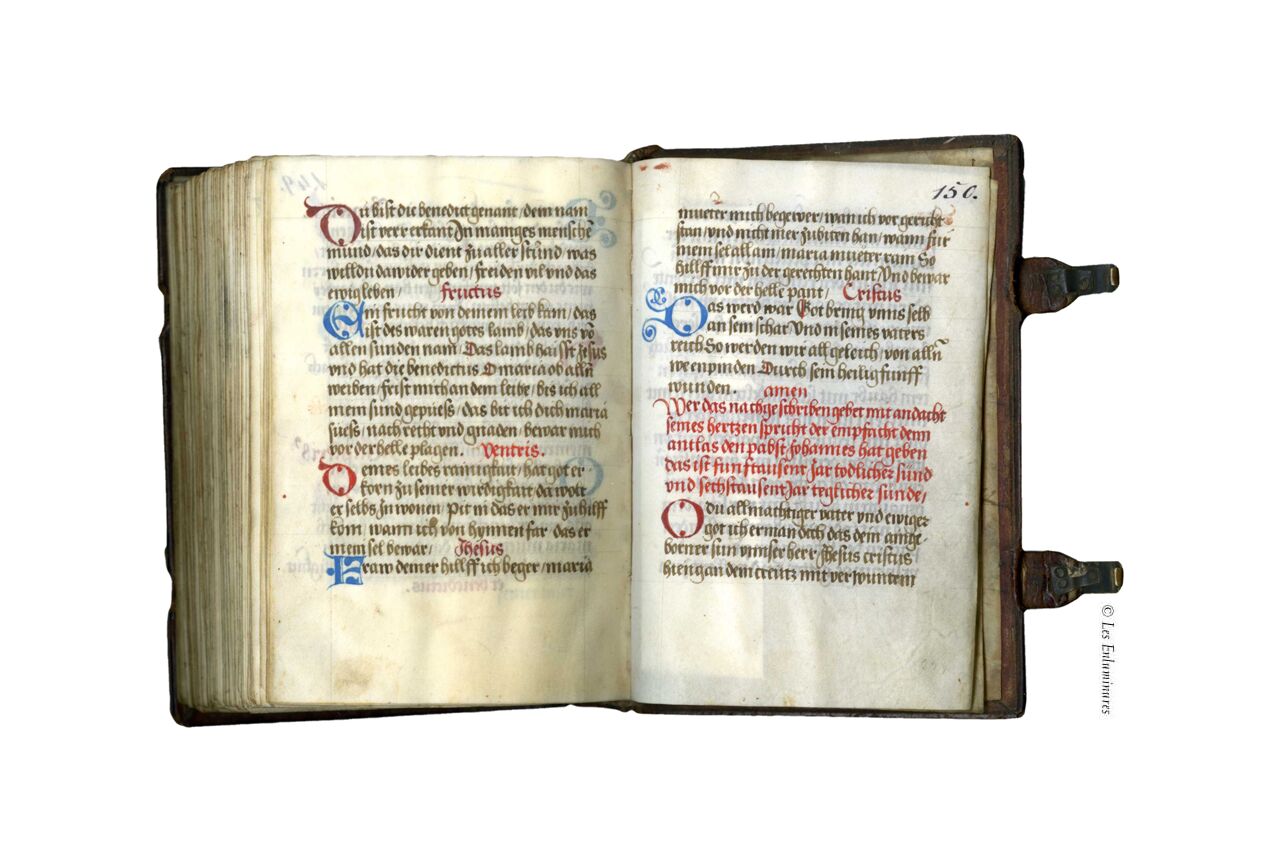 Du bist die benedict genant / dem nam
ist verr erkant In maniges mensche
mund / das dir dient zu aller stund / was
willdu da wider geben / freiden vil vnd das
ewig leben / fructus
Ain frucht von deinem leib kam / das
ist des waren gotes lamb / das vns vō
allen sunden nam / Das lamb haisst Jesus
vnd hat die benedictus O maria ob allñ
weiben / frist mich an dem leibe / bis ich all
mein sund gepuess / das bit ich dich maria
suess / nach recht vnd gnaden / bewar mich
vor der helle plagen . ventris .
Deines leibes rainigkait / hat got er-
korn zu seiner wirdigkait / da wolt
er selbs In wonen / pit in das er mir zu hilff
kom / wann ich von hynnen far das er
mein sel bewar / Jhesus
Fraw deiner hillff ich beger / maria
150.
mueter mich begewer / wan ich vor gericht
stan / vnd nicht mer zu biten han / wann für
mein sel allain / maria mueter rain So
hillff mir zu der gerechten hant / Vnd bewar
mich vor der helle pant / Cristus
Das werd war Got bring vnns selb
an sein schar Vnd in seines vaters
reich So werden wir all geleich / von allñ
we enpinden Durch sein heilig funff
wunden . amen
Wer das nachgeschriben gebet mit andacht
seines hertzen spricht der empfacht denn
antlas den pabst Johannes hat geben
das ist funftausent Jar todlicher sünd
vnd sechstausent Jar teglicher sünde /
O du allmachtiger vater vnd ewiger
got ich erman dich das dein ainge-
borner sun vnnser herr Jhesus cristus
hieng an dem creütz mit verwuntem
© Les Enluminures